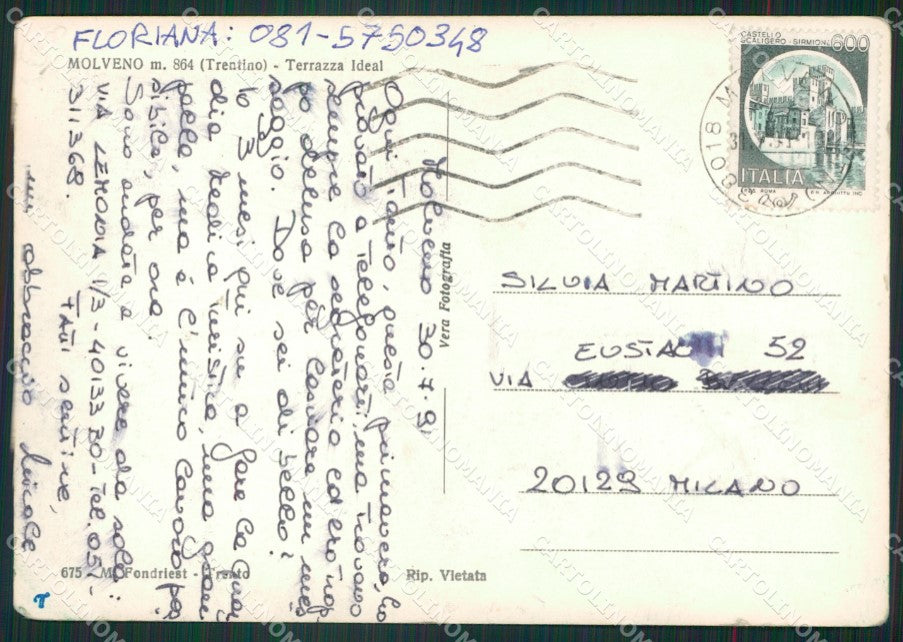 FLORIANA: 081-5750348
MOLVENO m. 864 (Trentino) - Terrazza Ideal
CASTELLO
SCALIGERO - SIRMIONE
600
ITALIA
38018 MOLVENO
Molveno 30.7.91
Ogni tanto, questa primavera, ho
provato a telefonarti, ma trovavo
sempre la segreteria ed ero
delusa per lasciare un mes
saggio. Dove sei di bello?
Io 3 mesi qui su a fare la Guar
dia Medica Turistica, una gran
palla, ma è l'unico lavoro pos
sibile, per ora.
Sono andata a vivere da sola:
VIA LEMONIA 1/3 - 40133 BO - Tel. 051-
311368.
Fatti sentire,
un abbraccio
Vera Fotografia
SILVIA MARTINO
EUSTACHI 52
VIA
20129 MILANO
675 M. Fondriest - Trento
Rip. Vietata
CARTOLINOMANIA